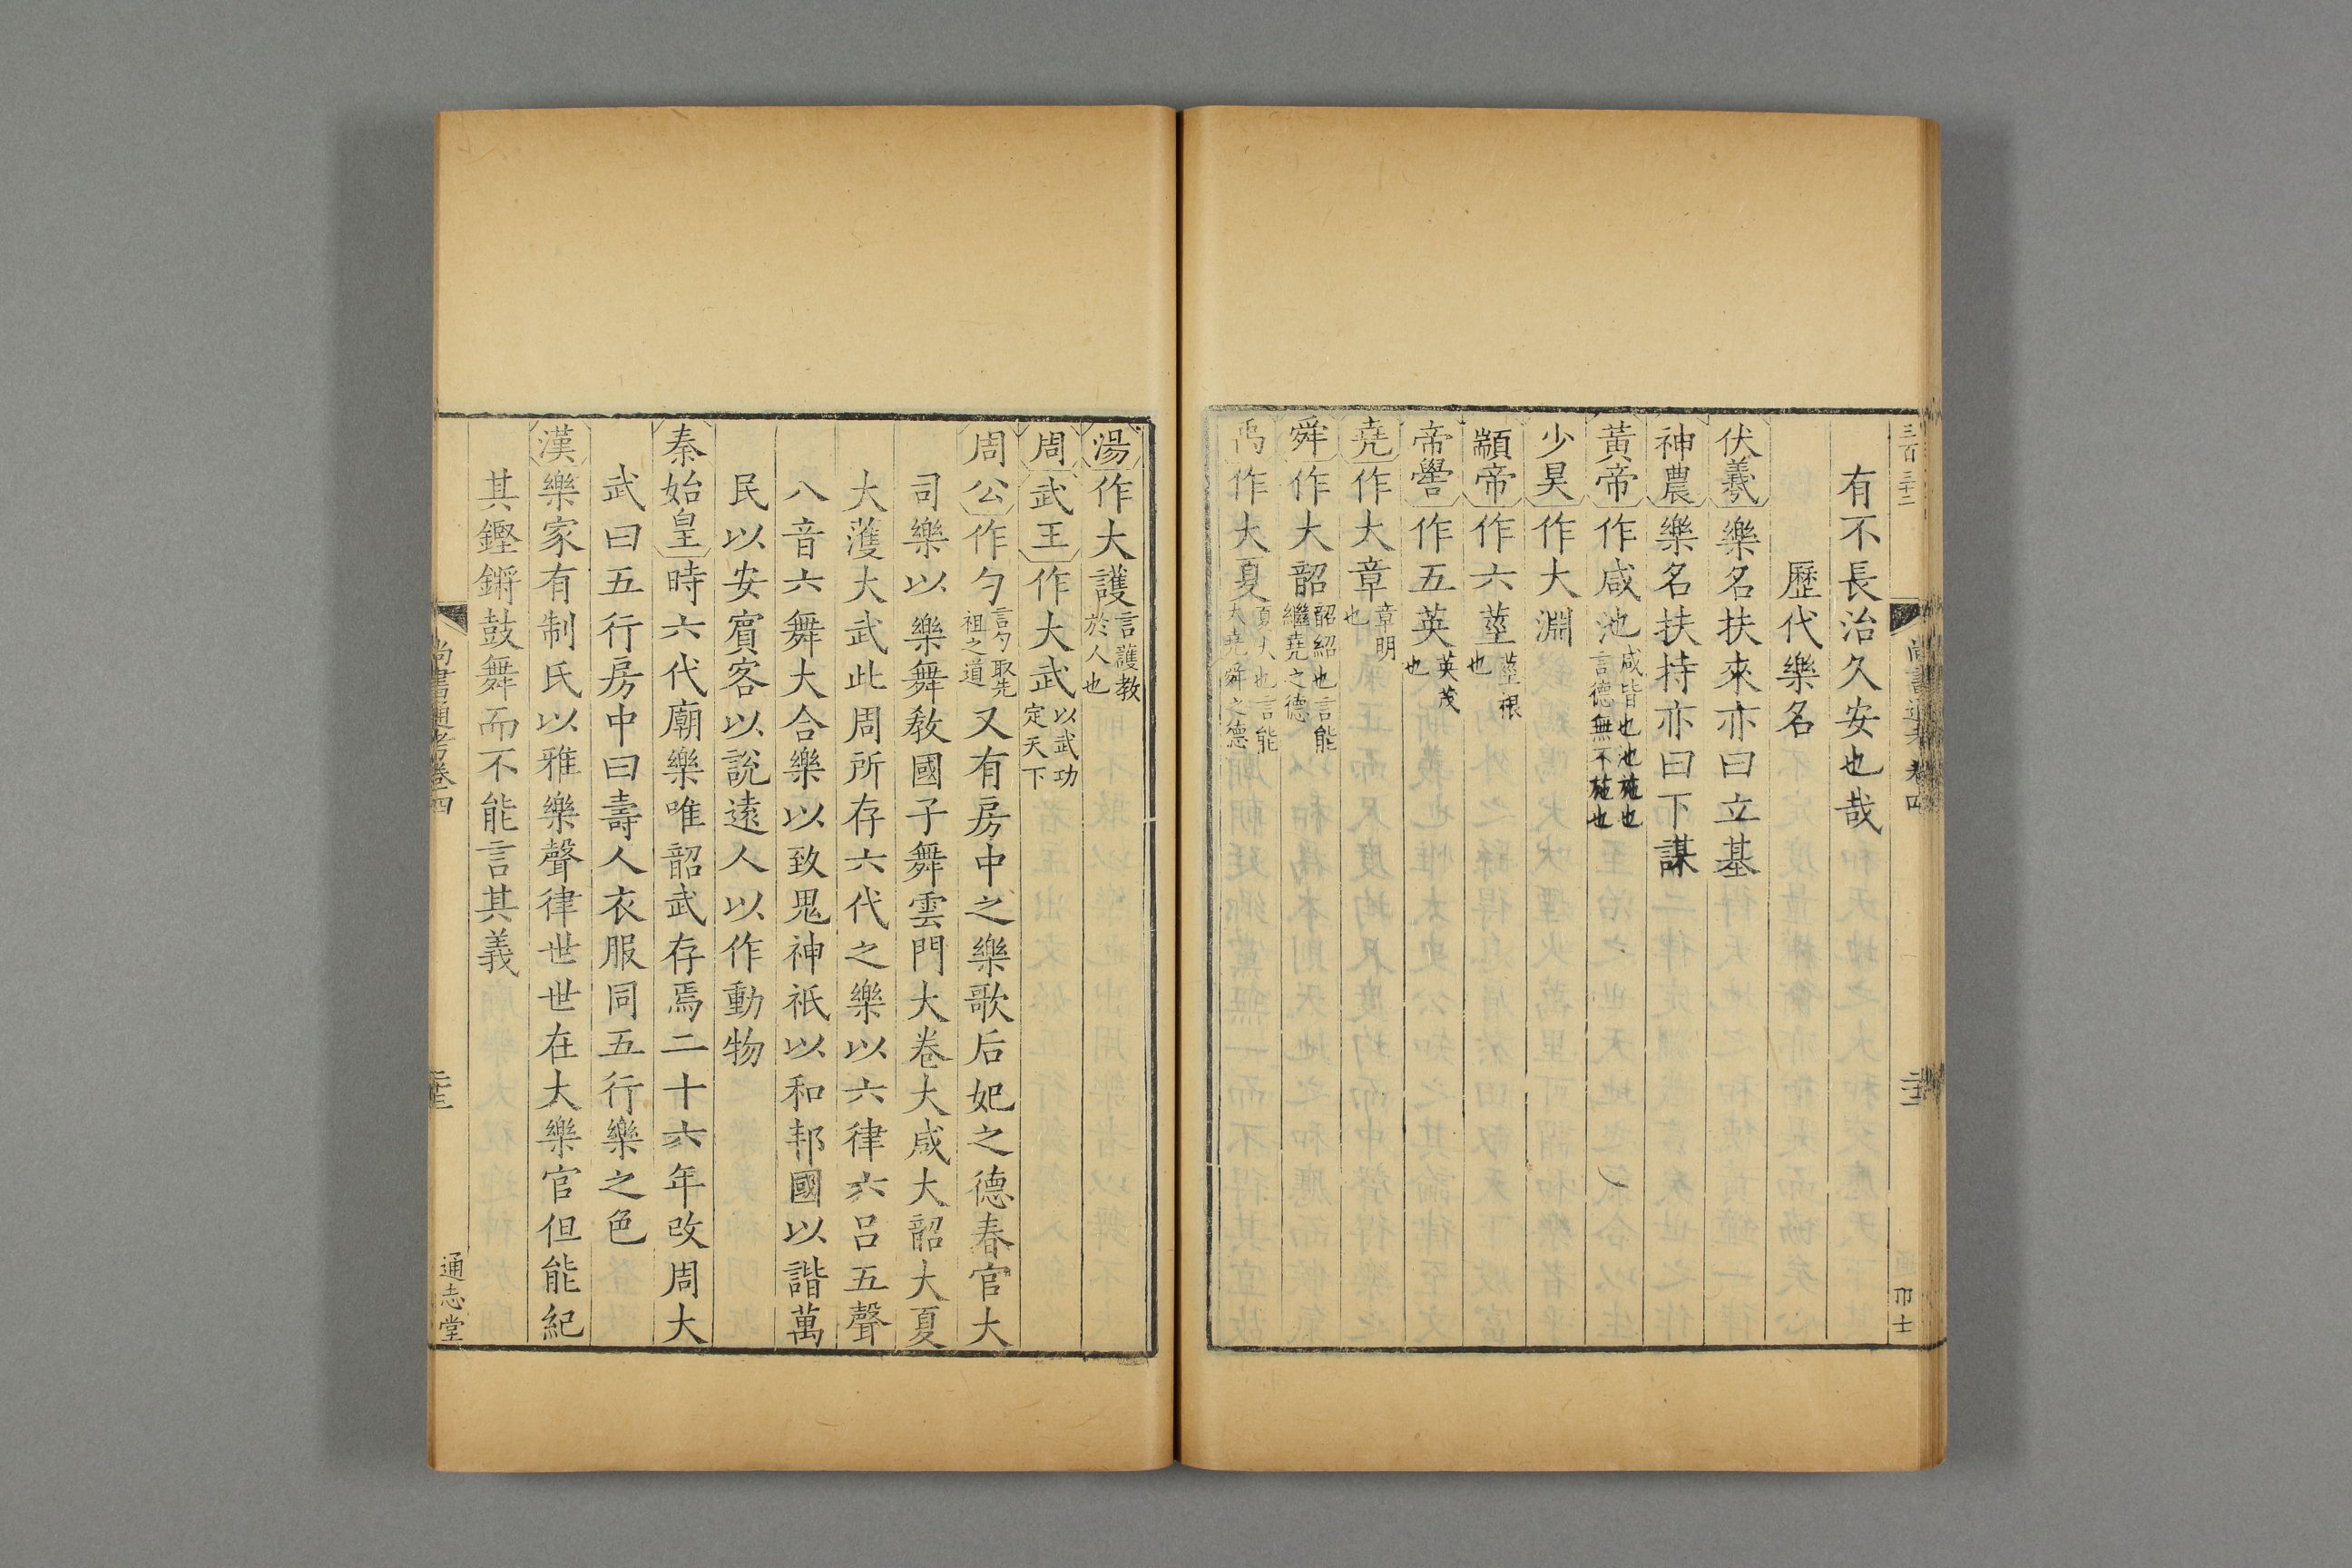 三百三十二
尚書通考卷四
有不長治久安也哉
歷代樂名
伏羲樂名扶來亦曰立基
神農樂名扶持亦曰下謀
黃帝作咸池咸皆也池施也言德無不施也
少昊作大淵
顓帝作六莖莖根也
帝嚳作五英英茂也
堯作大章章明也
舜作大韶韶紹也言能繼堯之德
禹作大夏夏大也言能大堯舜之德
湯作大護言護教於人也
周武王作大武以武功定天下
周公作勺言勺取先祖之道又有房中之樂歌后妃之德春官大
司樂以樂舞敎國子舞雲門大卷大咸大韶大夏
大濩大武此周所存六代之樂以六律六呂五聲
八音六舞大合樂以致鬼神祇以和邦國以諧萬
民以安賓客以說遠人以作動物
秦始皇時六代廟樂唯韶武存焉二十六年改周大
武曰五行房中曰壽人衣服同五行樂之色
漢樂家有制氏以雅樂聲律世世在大樂官但能紀
其鏗鏘鼓舞而不能言其義
尚書通考卷四
通志堂